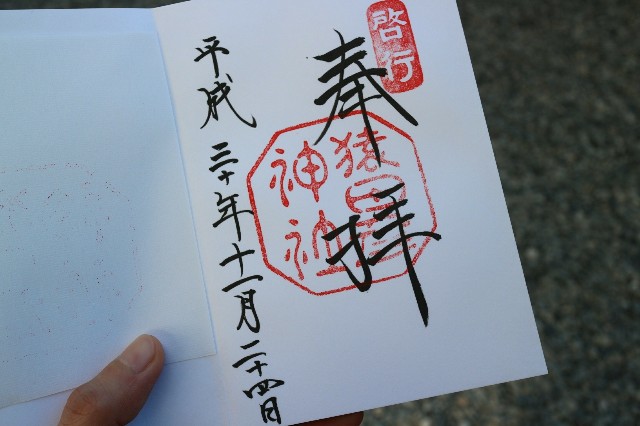 啓行
奉拝
猿田彦
神社
平成三十年十一月二十四日